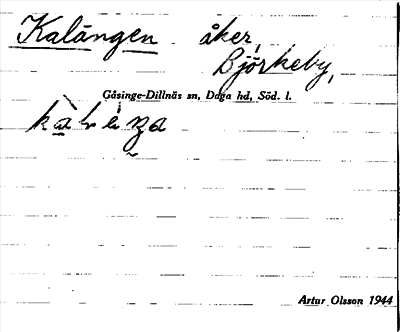 Kalängen åker,
Björkeby,
Gåsinge-Dillnäs sn, Daga hd, Söd. l.
Artur Olsson 1944